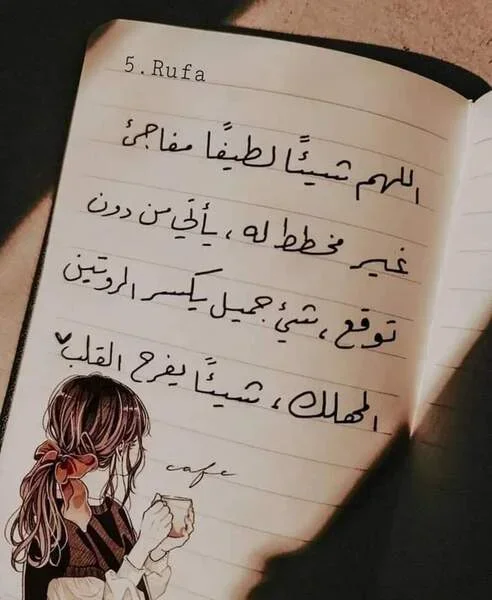 5.Rufa
اللهم شيئًا لطيفًا مفاجئ
غير مخطط له ، يأتي من دون
توقع ، شئ جميل يكسر الروتين
المهلك ، شيئًا يفرح القلب
cafe